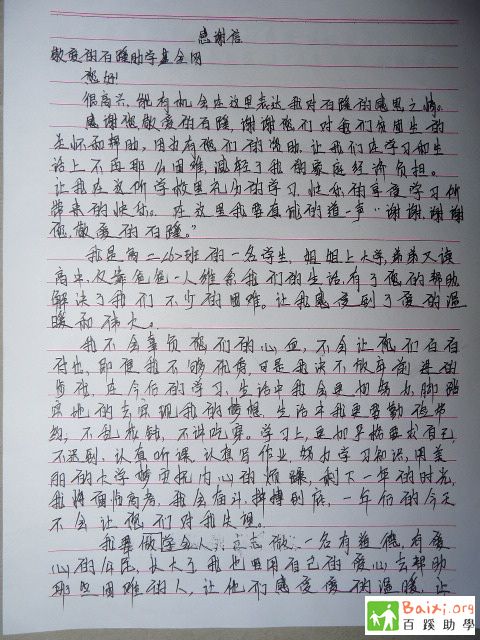 感谢信
敬爱的百蹊助学基金网
您好!
很高兴,能有机会在这里表达我对百蹊的感恩之情。
感谢您敬爱的百蹊,谢谢您们对我们贫困生的
关怀和帮助,因为有您们的资助,让我们在学习和生
活上不再那么困难,减轻了我的家庭经济负担。
让我在这所学校里充分的学习,快乐的享受学习所
带来的快乐。在这里我要真诚的道一声"谢谢,谢谢
您,敬爱的百蹊。"
我是高二<16>班的一名学生,姐姐上大学,弟弟又读
高中,仅靠爸爸一人维系我们的生活,有了您的帮助
解决了我们不少的困难。让我感受到了爱的温
暖和伟大。
我不会辜负您们的心血,不会让您们白白
付出,即使我不够优秀,可是我决不做对前进的
步伐,在今后的学习、生活中我会更加努力,脚踏
实地的去实现我的梦想。生活中我更要勤俭节
约,不乱花钱,不讲吃穿。学习上,更加严格要求自己,
不迟到、认真听课、认真写作业,努力学习知识,用美
丽的大学梦克抚内心的烦躁,剩下一年的时光,
我将面临高考,我会奋斗、拼搏到底,一年后的今天
不会让您们对我失望。
我要做学会人 做一名有道德,有爱
心的公民,长大了我也要用自己的爱心去帮助
那些困难的人,让他们感受爱的温暖,让
Baixi.org
百蹊助學